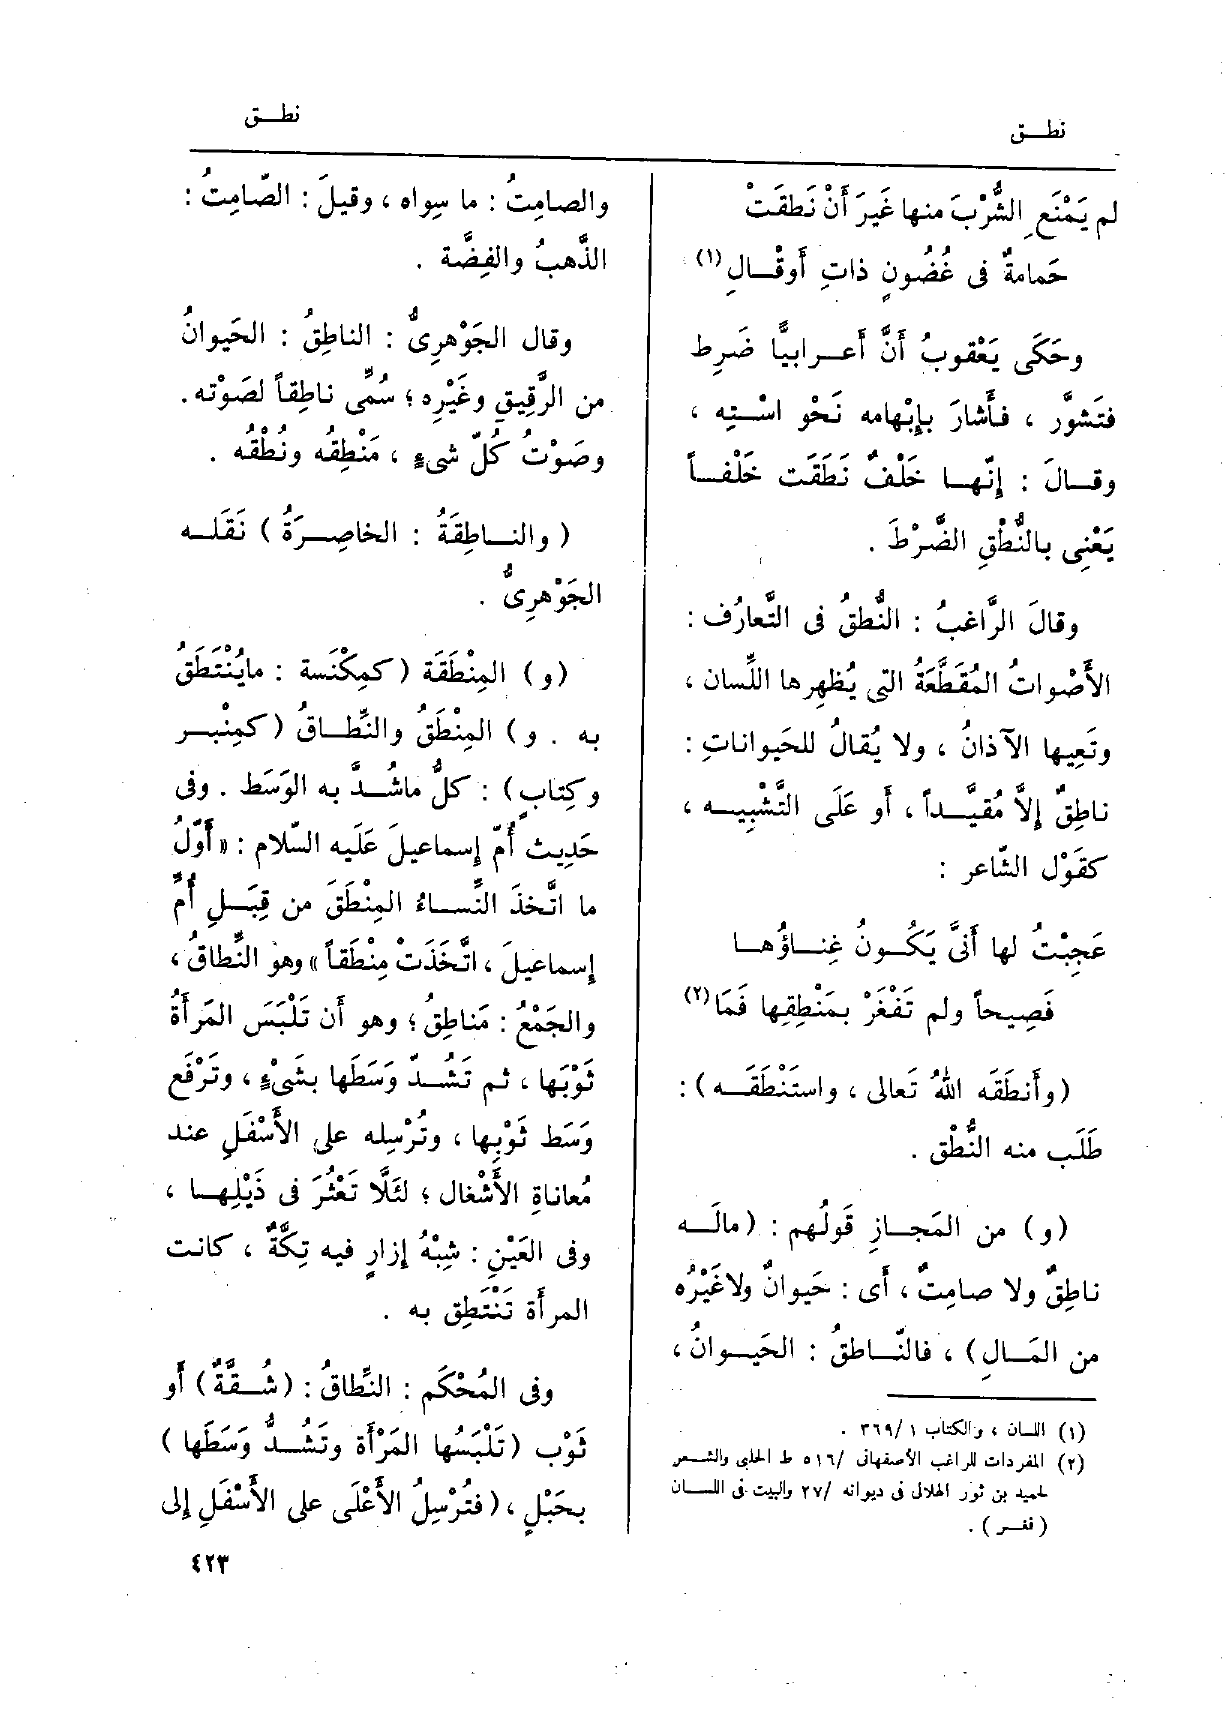 نطـق
نطـق
لم يَمْنَعِ الشُّرْبَ منها غَيرَ أَنْ نَطَقَتْ
حَمامةٌ فى غُصُونٍ ذاتِ أَوقْـالِ (١)
وحَكَى يَعْقوبُ أَنَّ أَعـرابيًّا ضَرِط
فتَشوَّر ، فـأَشارَ بإِبْهامه نَحْو اسْـتِه ،
وقـالَ : إِنّهـا خَلْفٌ نَطَقَت خَلْفـاً
يَعْنِى بالنُّطْقِ الضَّرْطَ .
وقالَ الرَّاغبُ : النُّطقُ فى التَّعارُف :
الأَصْواتُ المُقَطَّعَةُ التى يُظهِرها اللِّسان ،
وتَعِيها الآذانُ ، ولا يُقالُ للحَيواناتِ :
ناطِقٌ إِلاَّ مُقيَّـداً ، أَو عَلَى التَّشْبِيـه ،
كقَوْل الشّاعر :
عَجِبْتُ لها أَنىَّ يَكُـونُ غِنـاؤُهـا
فَصِيحاً ولم تَفْغَرْ بمَنْطِقِها فَمَا (٢)
(وأَنطَقَه اللهُ تَعالى ، واستَنْطَقَـه) :
طَلَب منه النُّطْق .
(و) من المَجـازِ قَولُهم : (مالَـه
ناطِقٌ ولا صامِتٌ ، أَى : حَيوانٌ ولاغَيْرُه
من المَـالِ) ، فالنّـاطقُ : الحَيـوانُ ،
(١) اللسان ، والكتاب ١ /٣٦٩ .
(٢) المفردات للراغب الأصفهانى /٥١٦ ط الحلبى والشعـر
لحميد بن ثور الهلالى فى ديوانه /٢٧ والبيت فى اللسـان
( فغـر ) .
والصامِتُ : ما سِواه ، وقيلَ : الصّامِتُ :
الذَّهبُ والفِضَّة .
وقال الجَوْهرِىُّ : الناطِقُ : الحَيوانُ
من الرَّقِيقِ وغَيْرِه ؛ سُمِّى ناطِقاً لصَوْتِه.
وصَوْتُ كُلّ شىءٍ ، مَنْطِقُه ونُطْقُه .
( والنـاطِقَةُ : الخاصِـرَةُ ) نَقَلـه
الجَوْهرِىُّ .
(و) المِنْطَقَة (كمِكْنَسة : مايُنْتَطَقُ
به . و) المِنْطَقُ والنِّطـاقُ (كمِنْبـر
وكِتابٍ) : كلُّ ماشُـدَّ به الوَسَط . وفى
حَدِيث أُمّ إِسماعيلَ عَلَيه السّلام : « أَوّلُ
ما اتَّخذَ النِّسـاءُ المِنْطَقَ من قِبَـلِ أُمِّ
إِسماعيلَ ، اتَّخَذَتْ مِنْطَقاً » وهو النِّطاقُ ،
والجَمْعُ : مَناطِقُ ؛ وهو أَن تَلْبَسَ المَرأَةُ
ثَوْبَها ، ثم تَشُـدّ وَسَطَها بشَىْءٍ ، وتَرْفَع
وَسَط ثَوْبِها ، وتُرْسِله على الأَسْفَلِ عند
مُعاناةِ الأَشْغال ؛ لئَلَّا تَعْثُرَ فى ذَيْلِهـا ،
وفى العَيْنِ : شِبْهُ إِزارٍ فيه تِكَّةٌ ، كانت
المرأَة تَنْتَطِق به .
وفى المُحْكَم : النِّطاقُ : (شُـقَّةٌ) أَو
ثَوْب (تَلْبَسُها المَرْأَة وتَشُـدُّ وَسَطَها )
بحَبْلٍ ، (فتُرْسِلُ الأَعْلَى على الأَسْفَلِ إلى
٤٢٣